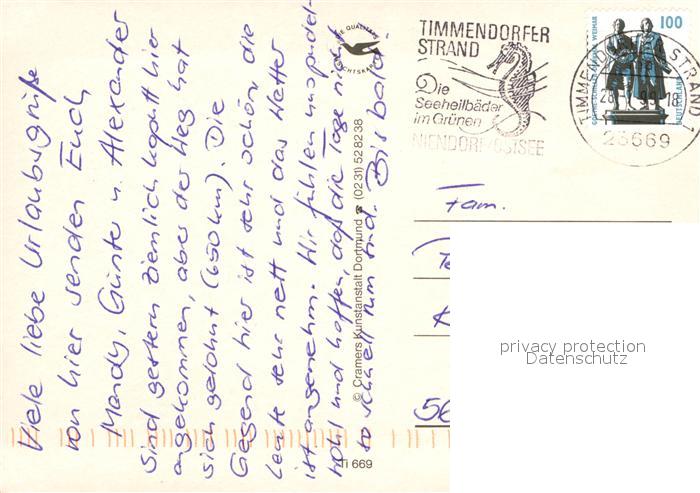 Viele liebe Urlaubsgrüße
von hier senden Euch
Mandy, Günter u. Alexander
Sind gestern ziemlich kaputt hier
angekommen, aber der Weg hat
sich gelohnt (650 km). Die
Gegend hier ist sehr schön, die
Leute sehr nett und das Wetter
ist angenehm. Wir fühlen uns pudel-
wohl und hoffen, daß die Tage nicht
so schnell rum sind. Bis bald.
© Cramers Kunstanstalt Dortmund ☎ (0231) 528238
Ti 669
TIMMENDORFER
STRAND
Die
Seeheilbäder
im Grünen
NIENDORF/OSTSEE
TIMMENDORFER STRAND
99-18
23669
100
Fam.
56
privacy protection
Datenschutz